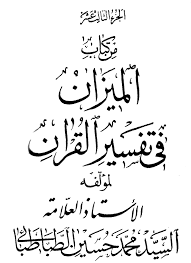 الجزء الثالث عشر
من كتاب
الميزان
في تفسير القرآن
لمؤلفه
الأستاذ العلامة
السيد محمد حسين الطباطبائي